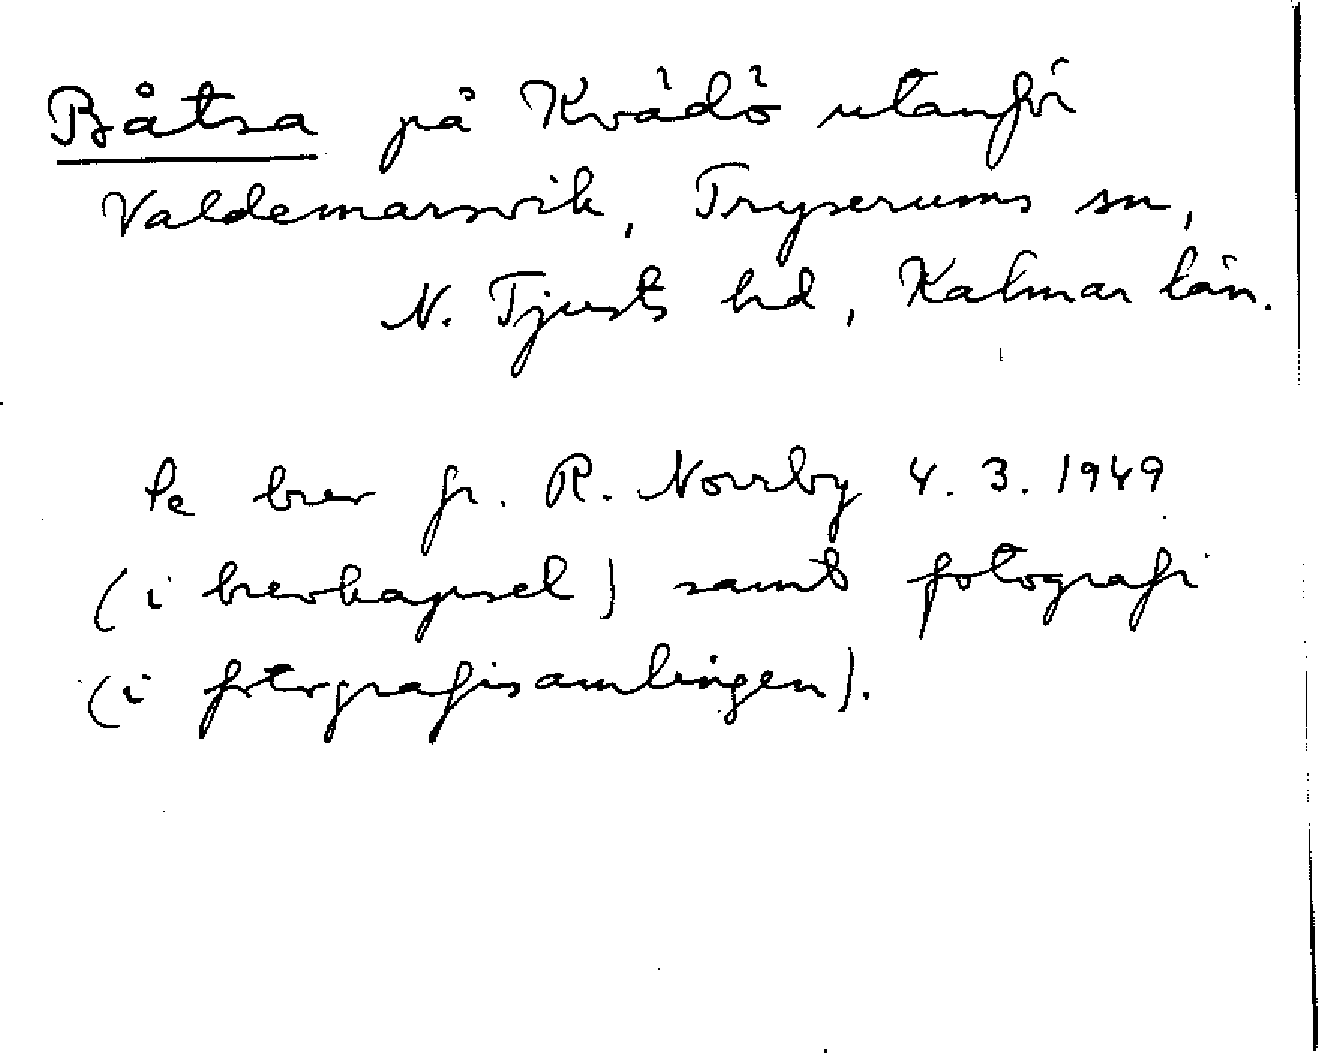 Båtsa på Kvädö utanför
Valdemarsvik, Tryserums sn,
N. Tjusts hd, Kalmar län.
Se brev fr. R. Norrby 4. 3. 1949
(i brevkapsel) samt fotografi
(i fotografisamlingen).